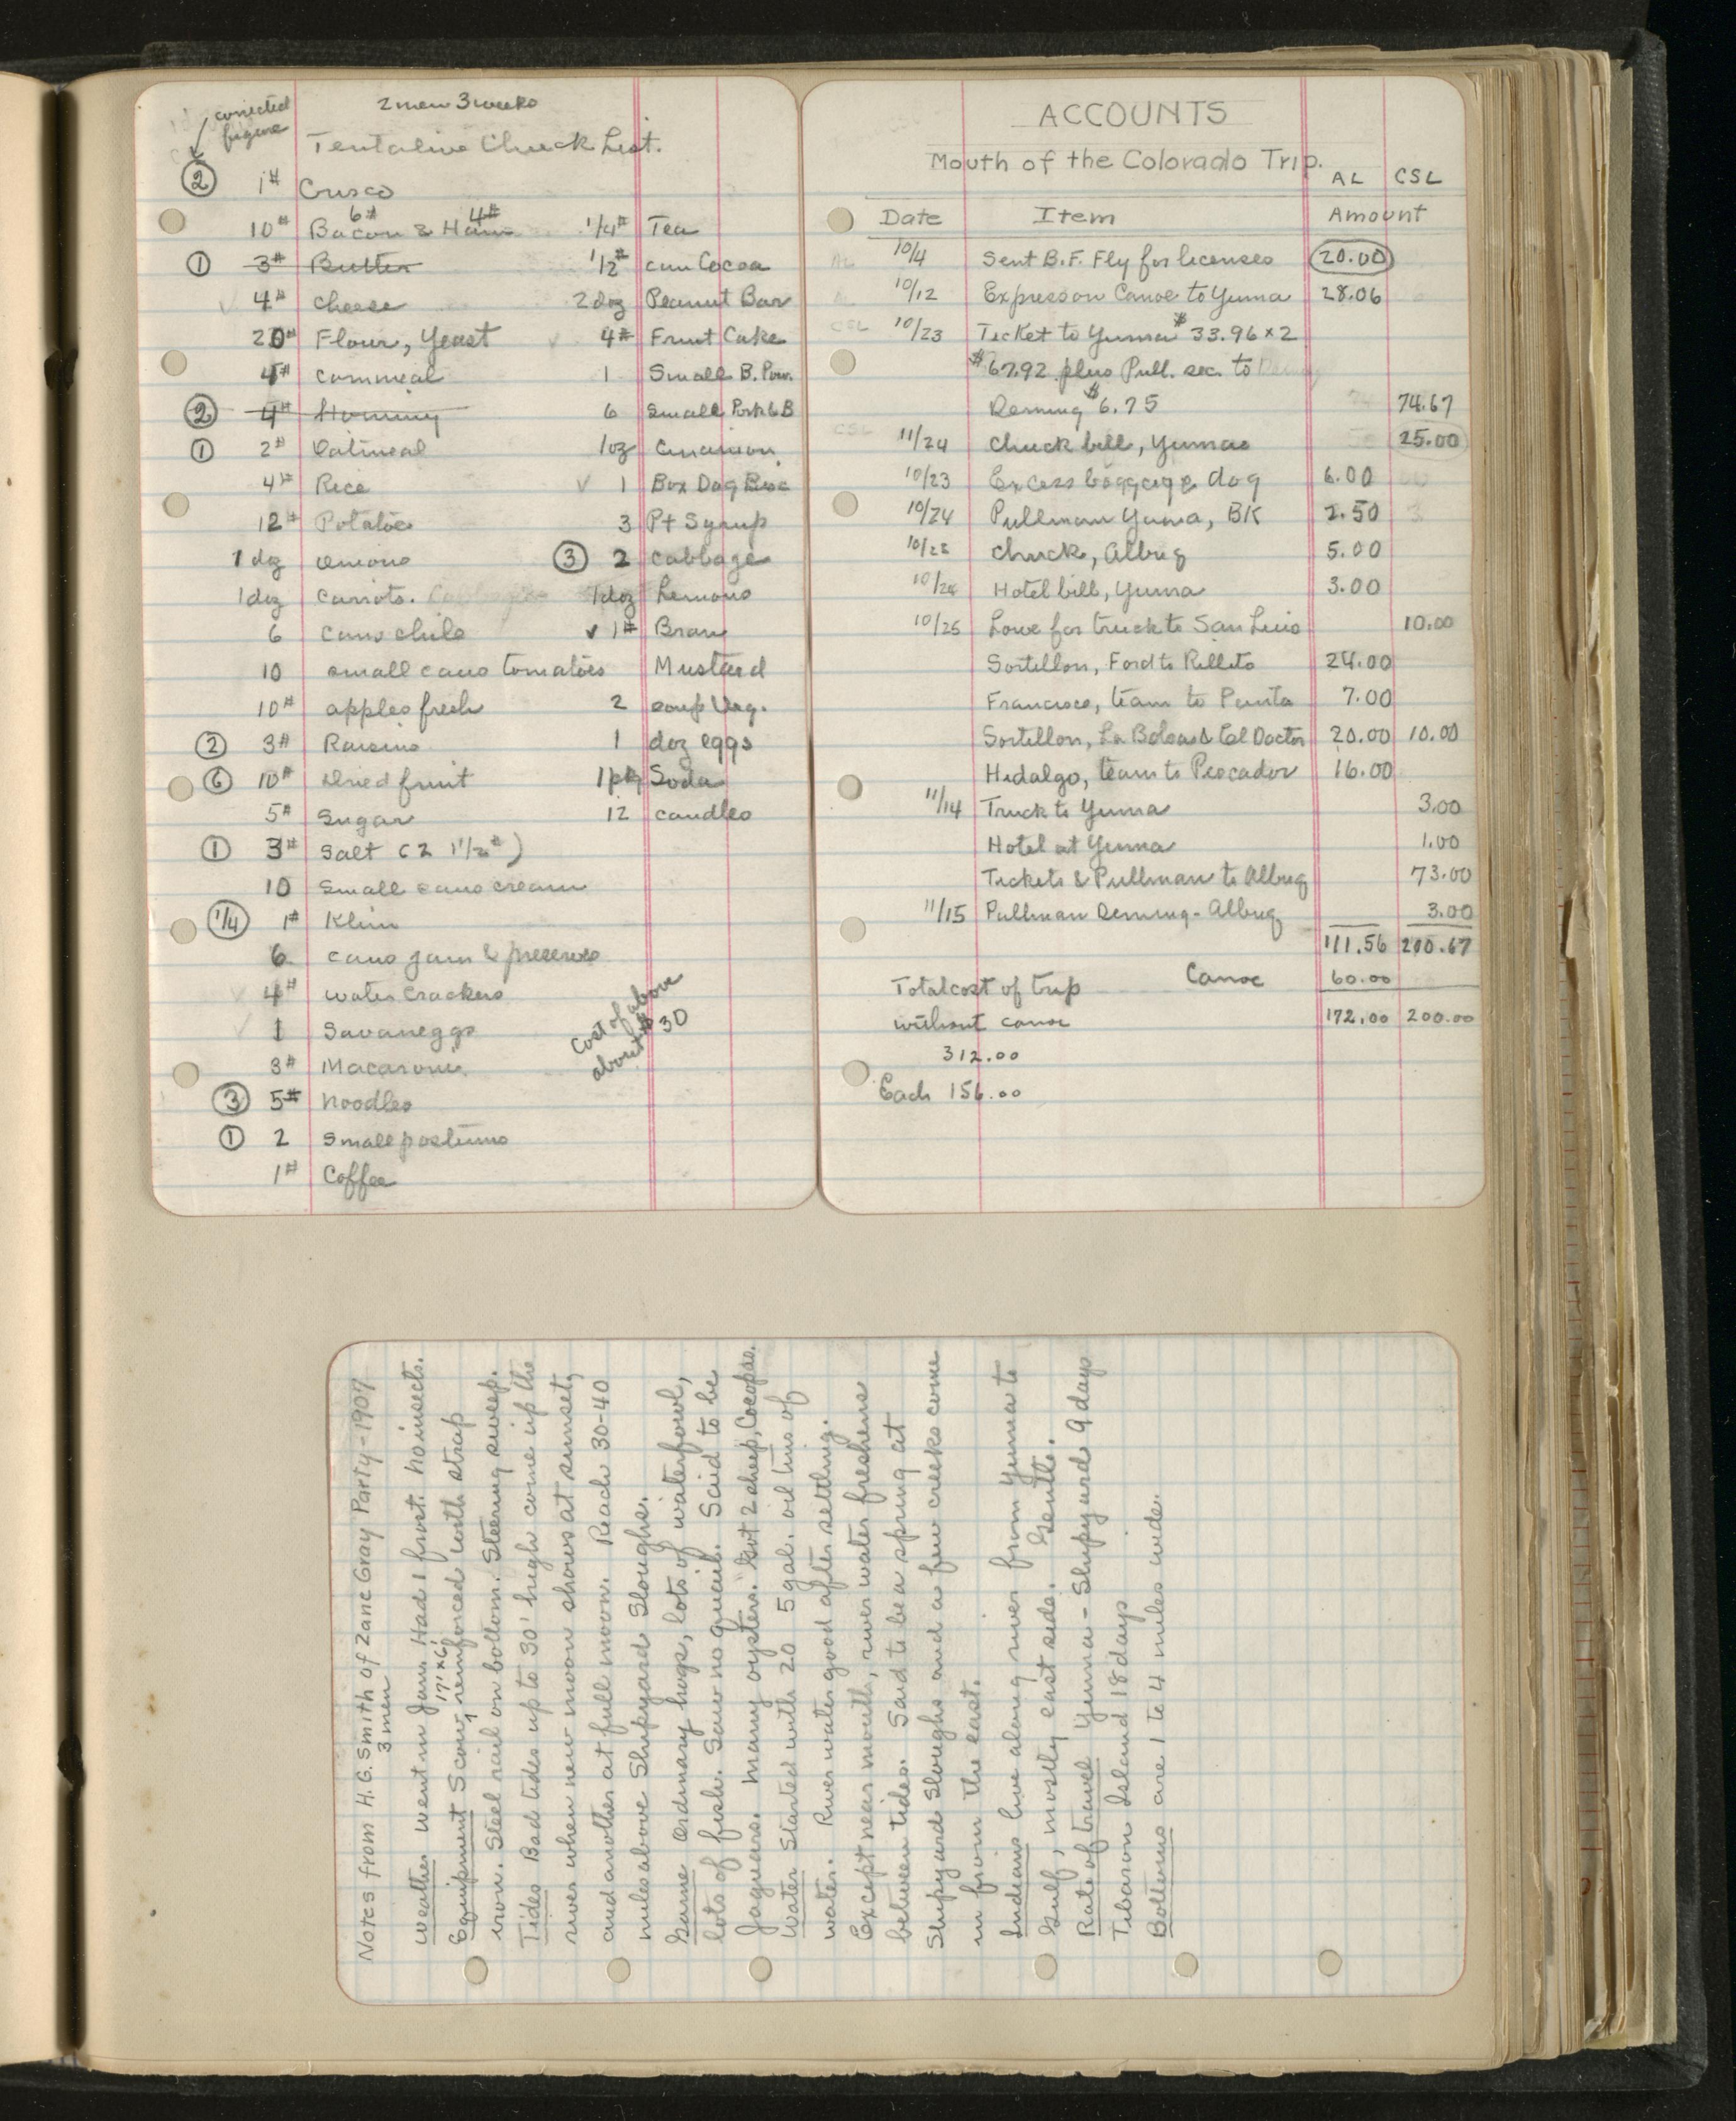 corrected
figure
2 men 3 weeks
Tentative Chuck List.
② 1# Crisco
10# Bacon 6# & Ham 4#
① 3# Butter
✓ 4# Cheese
20# Flour, Yeast
4# Cornmeal
② 4# Hominy
① 2# Oatmeal
4# Rice
12# Potatoes
1 doz onions
1 doz carrots.
6 cans chile
10 small cans tomatoes
10# apples fresh
② 3# Raisins
⑥ 10# dried fruit
5# Sugar
① 3# Salt (2 1 1/2#)
10 small cans cream
1/4 1# Klim
6 cans jam & preserves
✓ 4# water crackers
✓ 1 Savaneggs
3# Macaroni
③ 5# Noodles
① 2 small postums
1# Coffee
1/4# Tea
1/2# can Cocoa
2 doz Peanut Bar
✓ 4# Fruit Cake
1 Small B. Pow.
6 small Pork & B
1 oz Cinamon
✓ 1 Box Dog Bisc
3 Pt Syrup
③ 2 cabbage
1 doz Lemons
✓ 1# Bran
Mustard
2 soup Veg.
1 doz eggs
1 pkg Soda
12 candles
Cost of above
about $30
ACCOUNTS
Mouth of the Colorado Trip.
AL CSL
Date Item Amount
AL 10/4 Sent B.F. Fly for licenses 20.00
10/12 Express on Canoe to Yuma 28.06
CSL 10/23 Ticket to Yuma $33.96 x 2
$67.92 plus Pull. sec. to
Deming $6.75 74.67
CSL 11/24 Chuck bill, Yuma 25.00
10/23 Excess baggage dog 6.00
10/24 Pullman Yuma, BK 2.50
10/25 chuck, Albuq 5.00
10/24 Hotel bill, Yuma 3.00
10/25 Lowe for truck to San Luis 10.00
Sortillon, Ford to Rillito 24.00
Francisco, team to Punta 7.00
Sortillon, La Bolsa & El Doctor 20.00 10.00
Hidalgo, team to Pescador 16.00
11/14 Truck to Yuma 3.00
Hotel at Yuma 1.00
Tickets & Pullman to Albuq 73.00
11/15 Pullman Deming - Albuq 3.00
111.56 200.67
Canoe 60.00
172.00 200.00
Total cost of trip
without canoe
312.00
Each 156.00
Notes from H. G. Smith of Zane Gray Party - 1907
3 men
Weather Went in Jan. Had 1 frost. No insects.
Equipment Scow, 17' x 6', reinforced with strap
iron. Steel rail on bottom. Steering sweep.
Tides Bad tides up to 30' high come up the
river when new moon shows at sunset,
and another at full moon. Reach 30-40
miles above Shipyard Sloughs.
Game Ordinary hogs, lots of waterfowl,
lots of fish. Saw no quail. Said to be
Jaguars. Many oysters. Got 2 sheep, Cocopas.
Water Started with 20 5 gal. oil tins of
water. River water good after settling.
Except near mouth, river water freshens
between tides. Said to be a spring at
Shipyard Sloughs and a few creeks come
in from the east.
Indians live along river from Yuma to
Gulf, mostly east side. Gentle.
Rate of travel Yuma - Shipyard 9 days
Tiburon Island 18 days
Bottoms are 1 to 4 miles wide.